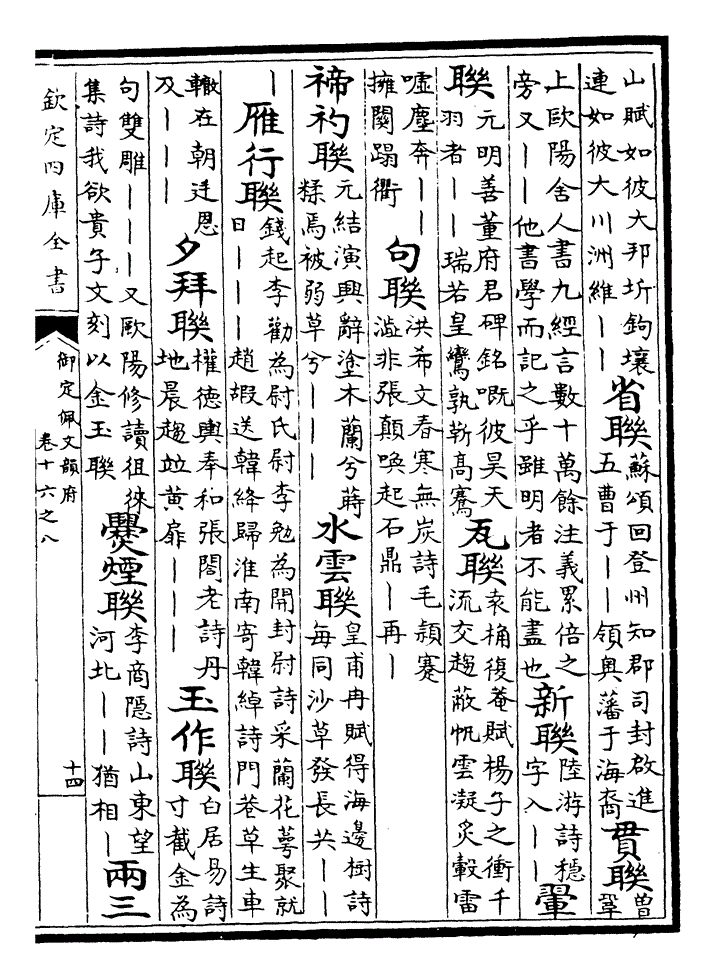 山賦如彼大邦圻鉤壤
連如彼大川洲維｜｜
省聯
蘇頌回登州知郡司封啟進
五曹于｜｜領奥藩于海裔
貫聯
曾
鞏
上歐陽舍人書九經言數十萬餘注義累倍之
旁又｜｜他書學而記之乎雖明者不能盡也
新聯
陸游詩穩
字入｜｜
翬
聯
元明善董府君碑銘嘅彼昊天
羽者｜｜瑞若皇鸞孰靳髙騫
瓦聯
袁桷復菴賦楊子之衝千
流交趨蔽帆雲凝炙轂雷
嘘塵奔｜｜
擁闗蹋衢
句聯
洪希文春寒無炭詩毛頴蹇
澁非張顛喚起石鼎｜再｜
禘礿聯
元結演興辭塗木蘭兮蒔
糅焉被弱草兮｜｜｜
水雲聯
皇甫冉賦得海邊樹詩
每同沙草發長共｜｜
｜
雁行聯
錢起李勸為尉氏尉李勉為開封尉詩采蘭花萼聚就
日｜｜｜趙嘏送韓絳歸淮南寄韓綽詩門巷草生車
轍在朝廷恩
及｜｜｜
夕拜聯
權德輿奉和張閣老詩丹
地晨趨竝黄扉｜｜｜
玉作聯
白居易詩
寸截金為
句雙雕｜｜｜又歐陽修讀徂徠
集詩我欲貴子文刻以金玉聯
爨煙聯
李商隠詩山東望
河北｜｜猶相｜
兩三
欽定四庫全書
御定佩文韻府
卷十六之八
十四